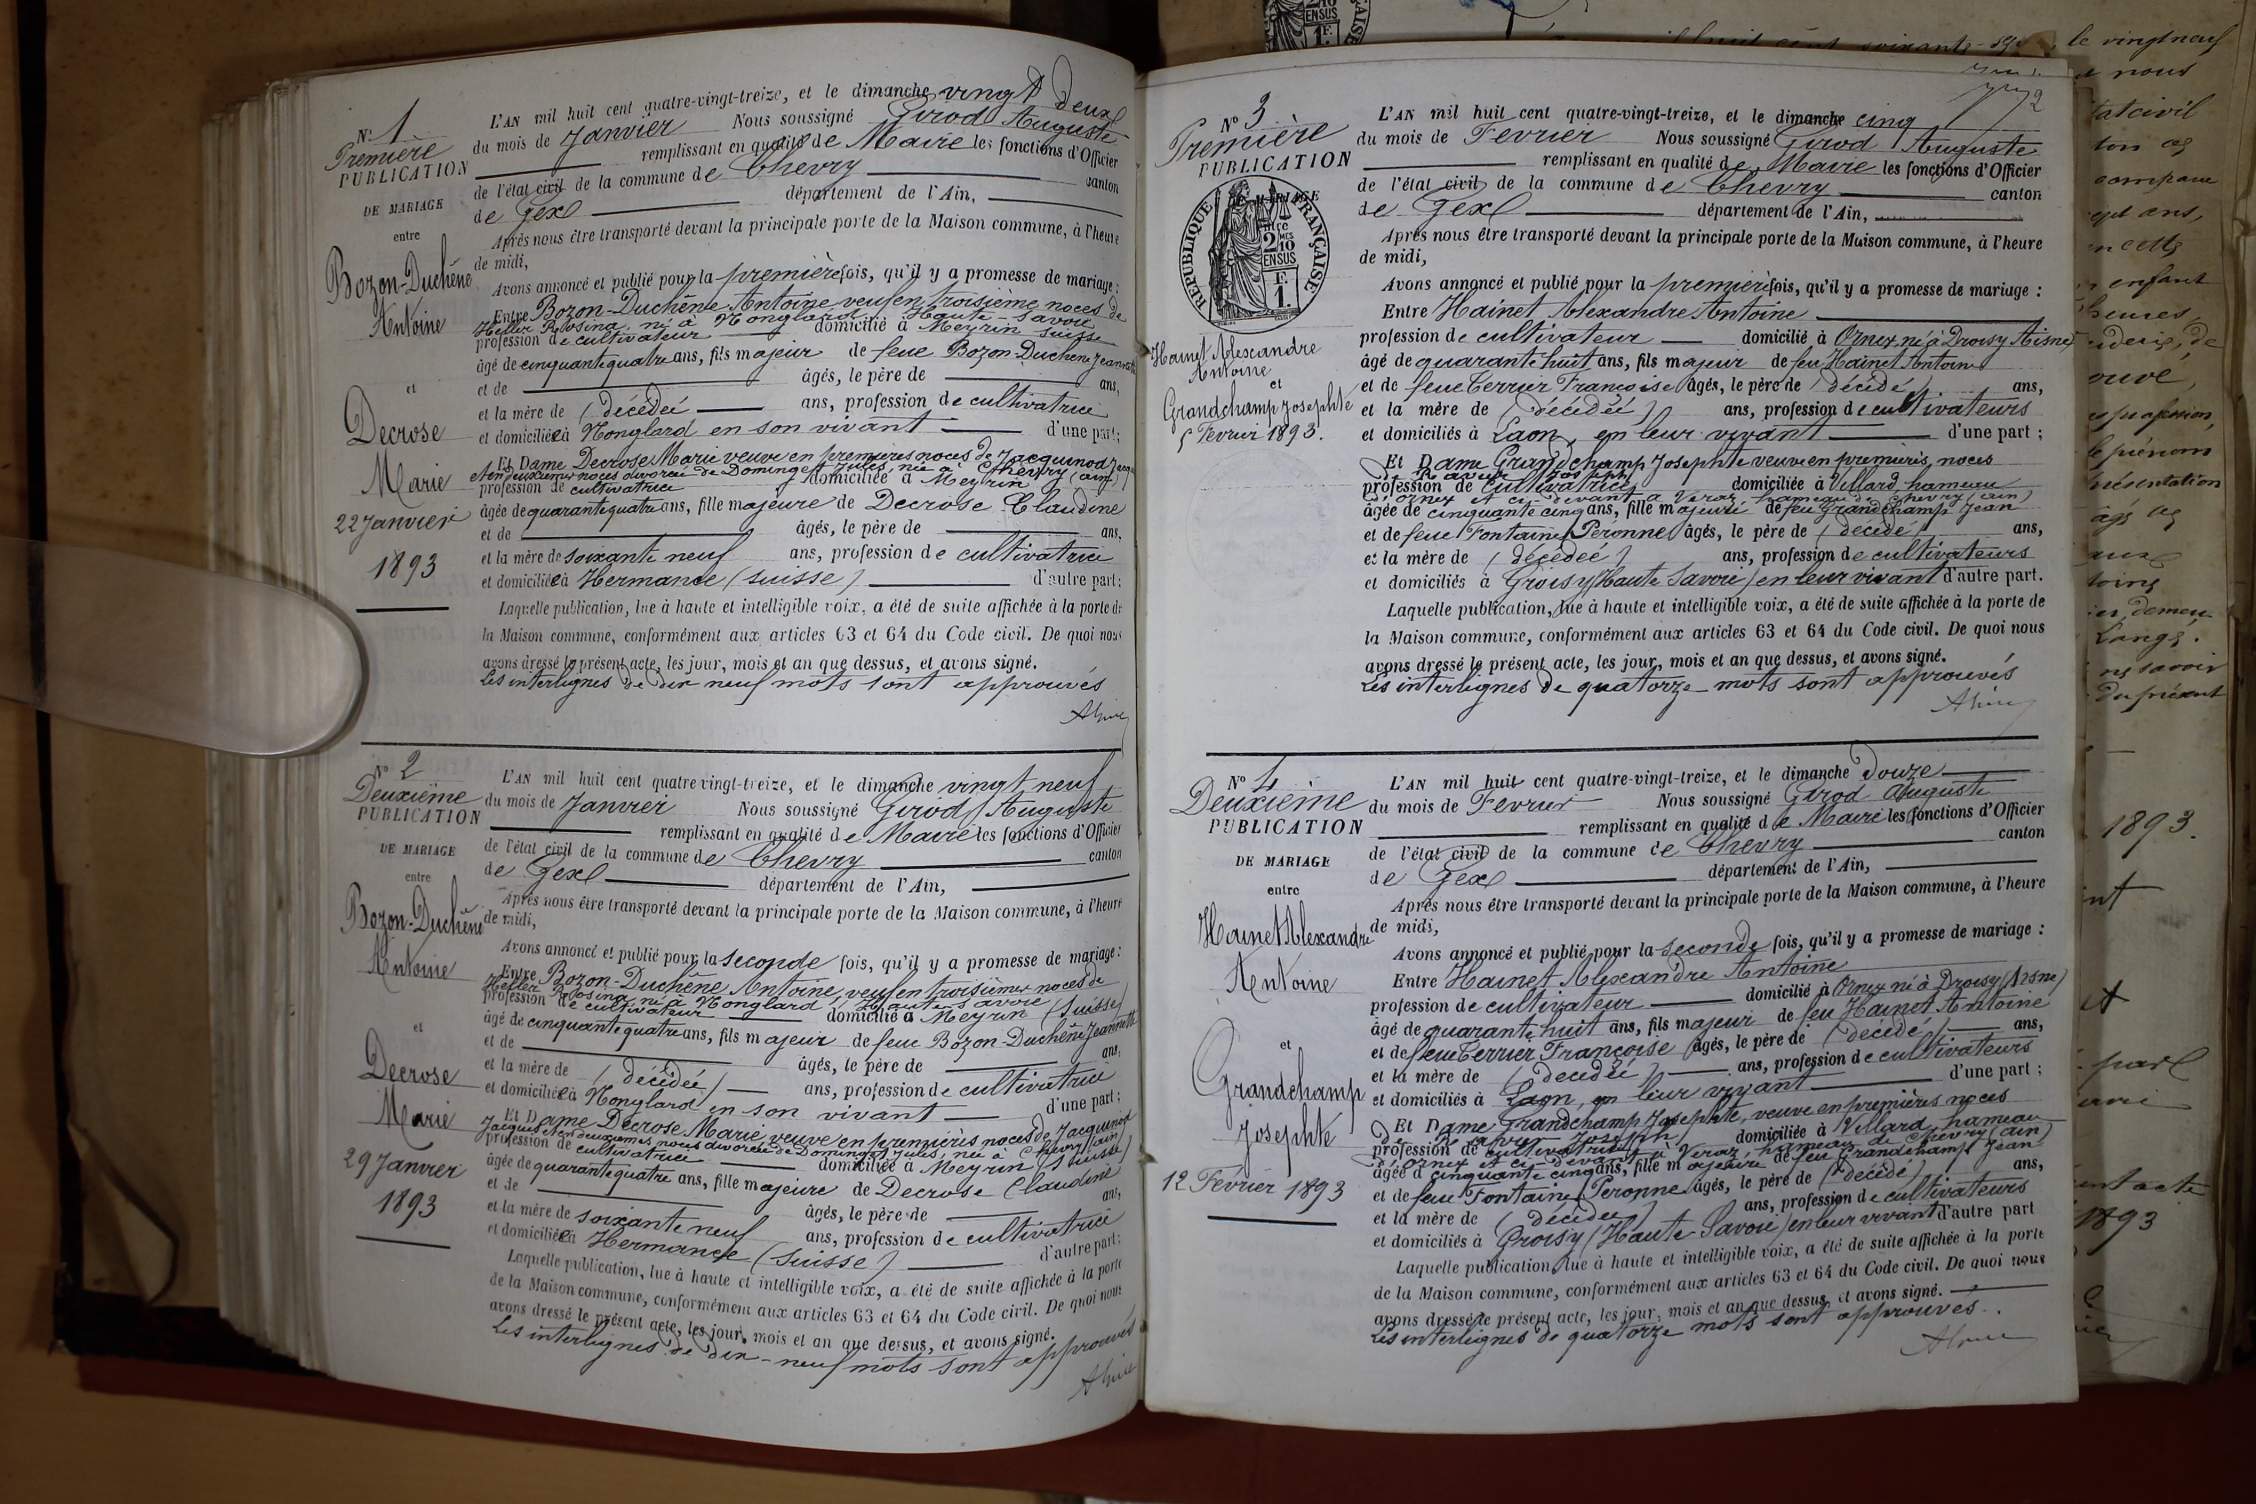 N° 1
Première
PUBLICATION
DE MARIAGE
entre
Bozon-Duchêne
Antoine
et
Decrose
Marie
22 Janvier
1893
L'AN mil huit cent quatre-vingt-treize, et le dimanche vingt deux
du mois de Janvier Nous soussigné Girod Auguste
remplissant en qualité de Maire les fonctions d'Officier
de l'état civil de la commune de Chevry canton
de Gex département de l'Ain,
Après nous être transporté devant la principale porte de la Maison commune, à l'heure
de midi,
Avons annoncé et publié pour la première fois, qu'il y a promesse de mariage :
Entre Bozon-Duchêne Antoine veuf en troisième noces de
Heller Rosina, né à Nonglard Haute-Savoie
profession de cultivateur domicilié à Meyrin Suisse
âgé de cinquante quatre ans, fils majeur de feue Bozon-Duchêne Jeannette
et de âgés, le père de ans,
et la mère de (décédeé ans, profession de cultivatrice
et domiciliée à Nonglard en son vivant d'une part;
Et Dame Decrose Marie veuve en premières noces de Jacquinod Jacques
et en deuxièmes noces divorcée de Dominget Jules, née à Chevry (ain)
profession de cultivatrice domiciliée à Meyrin
âgée de quarante quatre ans, fille majeure de Decrose Claudine
et de âgés, le père de ans,
et la mère de soixante neuf ans, profession de cultivatrice
et domiciliée à Hermance (Suisse) d'autre part;
Laquelle publication, lue à haute et intelligible voix, a été de suite affichée à la porte de
la Maison commune, conformément aux articles 63 et 64 du Code civil. De quoi nous
avons dressé le présent acte, les jour, mois et an que dessus, et avons signé.
Les interlignes de dix neuf mots sont approuvés
N° 2
Deuxième
PUBLICATION
DE MARIAGE
entre
Bozon-Duchêne
Antoine
et
Decrose
Marie
29 Janvier
1893
L'AN mil huit cent quatre-vingt-treize, et le dimanche vingt neuf
du mois de Janvier Nous soussigné Girod Auguste
remplissant en qualité de Maire les fonctions d'Officier
de l'état civil de la commune de Chevry canton
de Gex département de l'Ain,
Après nous être transporté devant la principale porte de la Maison commune, à l'heure
de midi,
Avons annoncé et publié pour la seconde fois, qu'il y a promesse de mariage :
Entre Bozon-Duchêne Antoine, veuf en troisièmes noces de
Heller Rosina, né à Nonglard, Haute Savoie
profession de cultivateur domicilié à Meyrin (Suisse)
âgé de cinquante quatre ans, fils majeur de feue Bozon-Duchêne Jeannette
et de âgés, le père de ans,
et la mère de (décédeé) ans, profession de cultivatrice
et domiciliée à Nonglard en son vivant d'une part;
Et Dame Decrose Marie, veuve en premières noces de Jacquinod
Jacques et en deuxièmes noces divorcée de Dominget Jules, née à Chevry (ain)
profession de cultivatrice domiciliée à Meyrin (Suisse)
âgée de quarante quatre ans, fille majeure de Decrose Claudine
et de âgés, le père de ans,
et la mère de soixante neuf ans, profession de cultivatrice
et domiciliée à Hermance (Suisse) d'autre part;
Laquelle publication, lue à haute et intelligible voix, a été de suite affichée à la porte
de la Maison commune, conformément aux articles 63 et 64 du Code civil. De quoi nous
avons dressé le présent acte, les jour, mois et an que dessus, et avons signé.
Les interlignes de dix-neuf mots sont approuvés
N° 3
Première
PUBLICATION
DE MARIAGE
entre
RÉPUBLIQUE FRANÇAISE
2 MES 10
EN SUS
1 F.
Hainet Alexandre
Antoine
et
Grandchamp Josephte
5 Fevrier 1893.
L'AN mil huit cent quatre-vingt-treize, et le dimanche cinq
du mois de Fevrier Nous soussigné Girod Auguste
remplissant en qualité de Maire les fonctions d'Officier
de l'état civil de la commune de Chevry canton
de Gex département de l'Ain,
Après nous être transporté devant la principale porte de la Maison commune, à l'heure
de midi,
Avons annoncé et publié pour la première fois, qu'il y a promesse de mariage :
Entre Hainet Alexandre Antoine
profession de cultivateur domicilié à Ornex né à Droisy Aisne
âgé de quarante huit ans, fils majeur de feu Hainet Antoine
et de feue Terrier Françoise âgés, le père de (décédé) ans,
et la mère de (décédeé) ans, profession de cultivateurs
et domiciliés à Laon, en leur vivant d'une part ;
Et Dame Grandchamp Josephte veuve en premières noces
profession de cultivatrice domiciliée à Villard hameau
d'Ornex et ci-devant à Veraz, hameau de Chevry (ain)
âgée de cinquante cinq ans, fille majeure de feu Grandchamp Jean
et de feue Fontaine Péronne âgés, le père de (décédé) ans,
et la mère de (décédeé) ans, profession de cultivateurs
et domiciliés à Groisy (Haute Savoie) en leur vivant d'autre part.
Laquelle publication, lue à haute et intelligible voix, a été de suite affichée à la porte de
la Maison commune, conformément aux articles 63 et 64 du Code civil. De quoi nous
avons dressé le présent acte, les jour, mois et an que dessus, et avons signé.
Les interlignes de quatorze mots sont approuvés
N° 4
Deuxième
PUBLICATION
DE MARIAGE
entre
Hainet Alexandre
Antoine
et
Grandchamp
Josephte
12 Février 1893
L'AN mil huit cent quatre-vingt-treize, et le dimanche douze
du mois de Fevrier Nous soussigné Girod Auguste
remplissant en qualité de Maire les fonctions d'Officier
de l'état civil de la commune de Chevry canton
de Gex département de l'Ain,
Après nous être transporté devant la principale porte de la Maison commune, à l'heure
de midi,
Avons annoncé et publié pour la seconde fois, qu'il y a promesse de mariage :
Entre Hainet Alexandre Antoine
profession de cultivateur domicilié à Ornex né à Droisy (Aisne)
âgé de quarante huit ans, fils majeur de feu Hainet Antoine
et de feue Terrier Françoise âgés, le père de (décédé) ans,
et la mère de (décédeé) ans, profession de cultivateurs
et domiciliés à Laon, en leur vivant d'une part ;
Et Dame Grandchamp Josephte, veuve en premières noces
profession de cultivatrice domiciliée à Villard hameau
d'Ornex et ci-devant à Veraz, hameau de Chevry (ain)
âgée de cinquante cinq ans, fille majeure de feu Grandchamp Jean
et de feue Fontaine Peronne âgés, le père de (décédé) ans,
et la mère de (décédeé) ans, profession de cultivateurs
et domiciliés à Groisy (Haute Savoie) en leur vivant d'autre part
Laquelle publication, lue à haute et intelligible voix, a été de suite affichée à la porte
de la Maison commune, conformément aux articles 63 et 64 du Code civil. De quoi nous
avons dressé le présent acte, les jour, mois et an que dessus, et avons signé.
Les interlignes de quatorze mots sont approuvés.
le vingt neuf
nous
1893.
1893